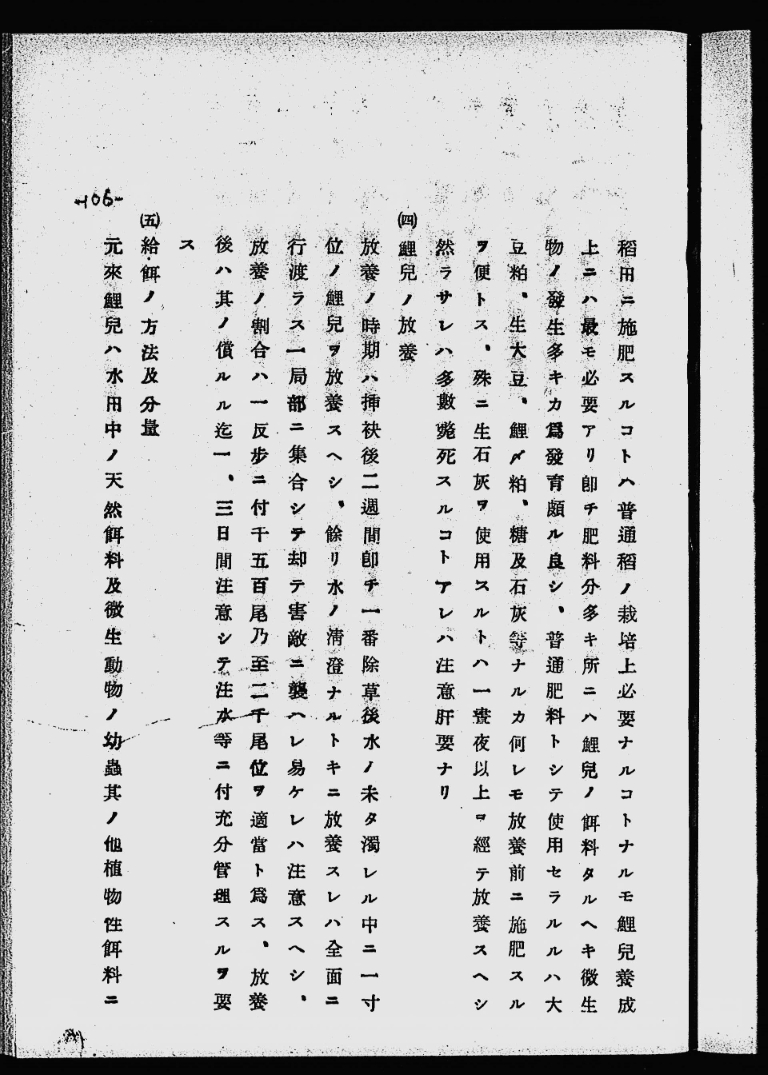 稻田ニ施肥スルコトハ普通稻ノ栽培上必要ナルコトナルモ鯉兒養成
上ニハ最モ必要アリ卽チ肥料分多キ所ニハ鯉兒ノ餌料タルヘキ微生
物ノ發生多キカ爲發育頗ル良シ、普通肥料トシテ使用セラルルハ大
豆粕、生大豆、鯉〆粕、糖及石灰等ナルカ何レモ放養前ニ施肥スル
ヲ便トス、殊ニ生石灰ヲ使用スルトハ一晝夜以上ヲ經テ放養スヘシ
然ラサレハ多數斃死スルコトアレハ注意肝要ナリ
㈣鯉兒ノ放養
放養ノ時期ハ挿秧後二週間卽チ一番除草後水ノ未タ濁レル中ニ一寸
位ノ鯉兒ヲ放養スヘシ、餘リ水ノ淸澄ナルトキニ放養スレハ全面ニ
行渡ラス一局部ニ集合シテ却テ害敵ニ襲ハレ易ケレハ注意スヘシ、
放養ノ割合ハ一反步ニ付千五百尾乃至二千尾位ヲ適當ト爲ス、放養
後ハ其ノ償ルル迄一、三日間注意シテ注水等ニ付充分管理スルヲ要
ス
㈤給餌ノ方法及分量
元來鯉兒ハ水田中ノ天然餌料及微生動物ノ幼蟲其ノ他植物性餌料ニ
-106-